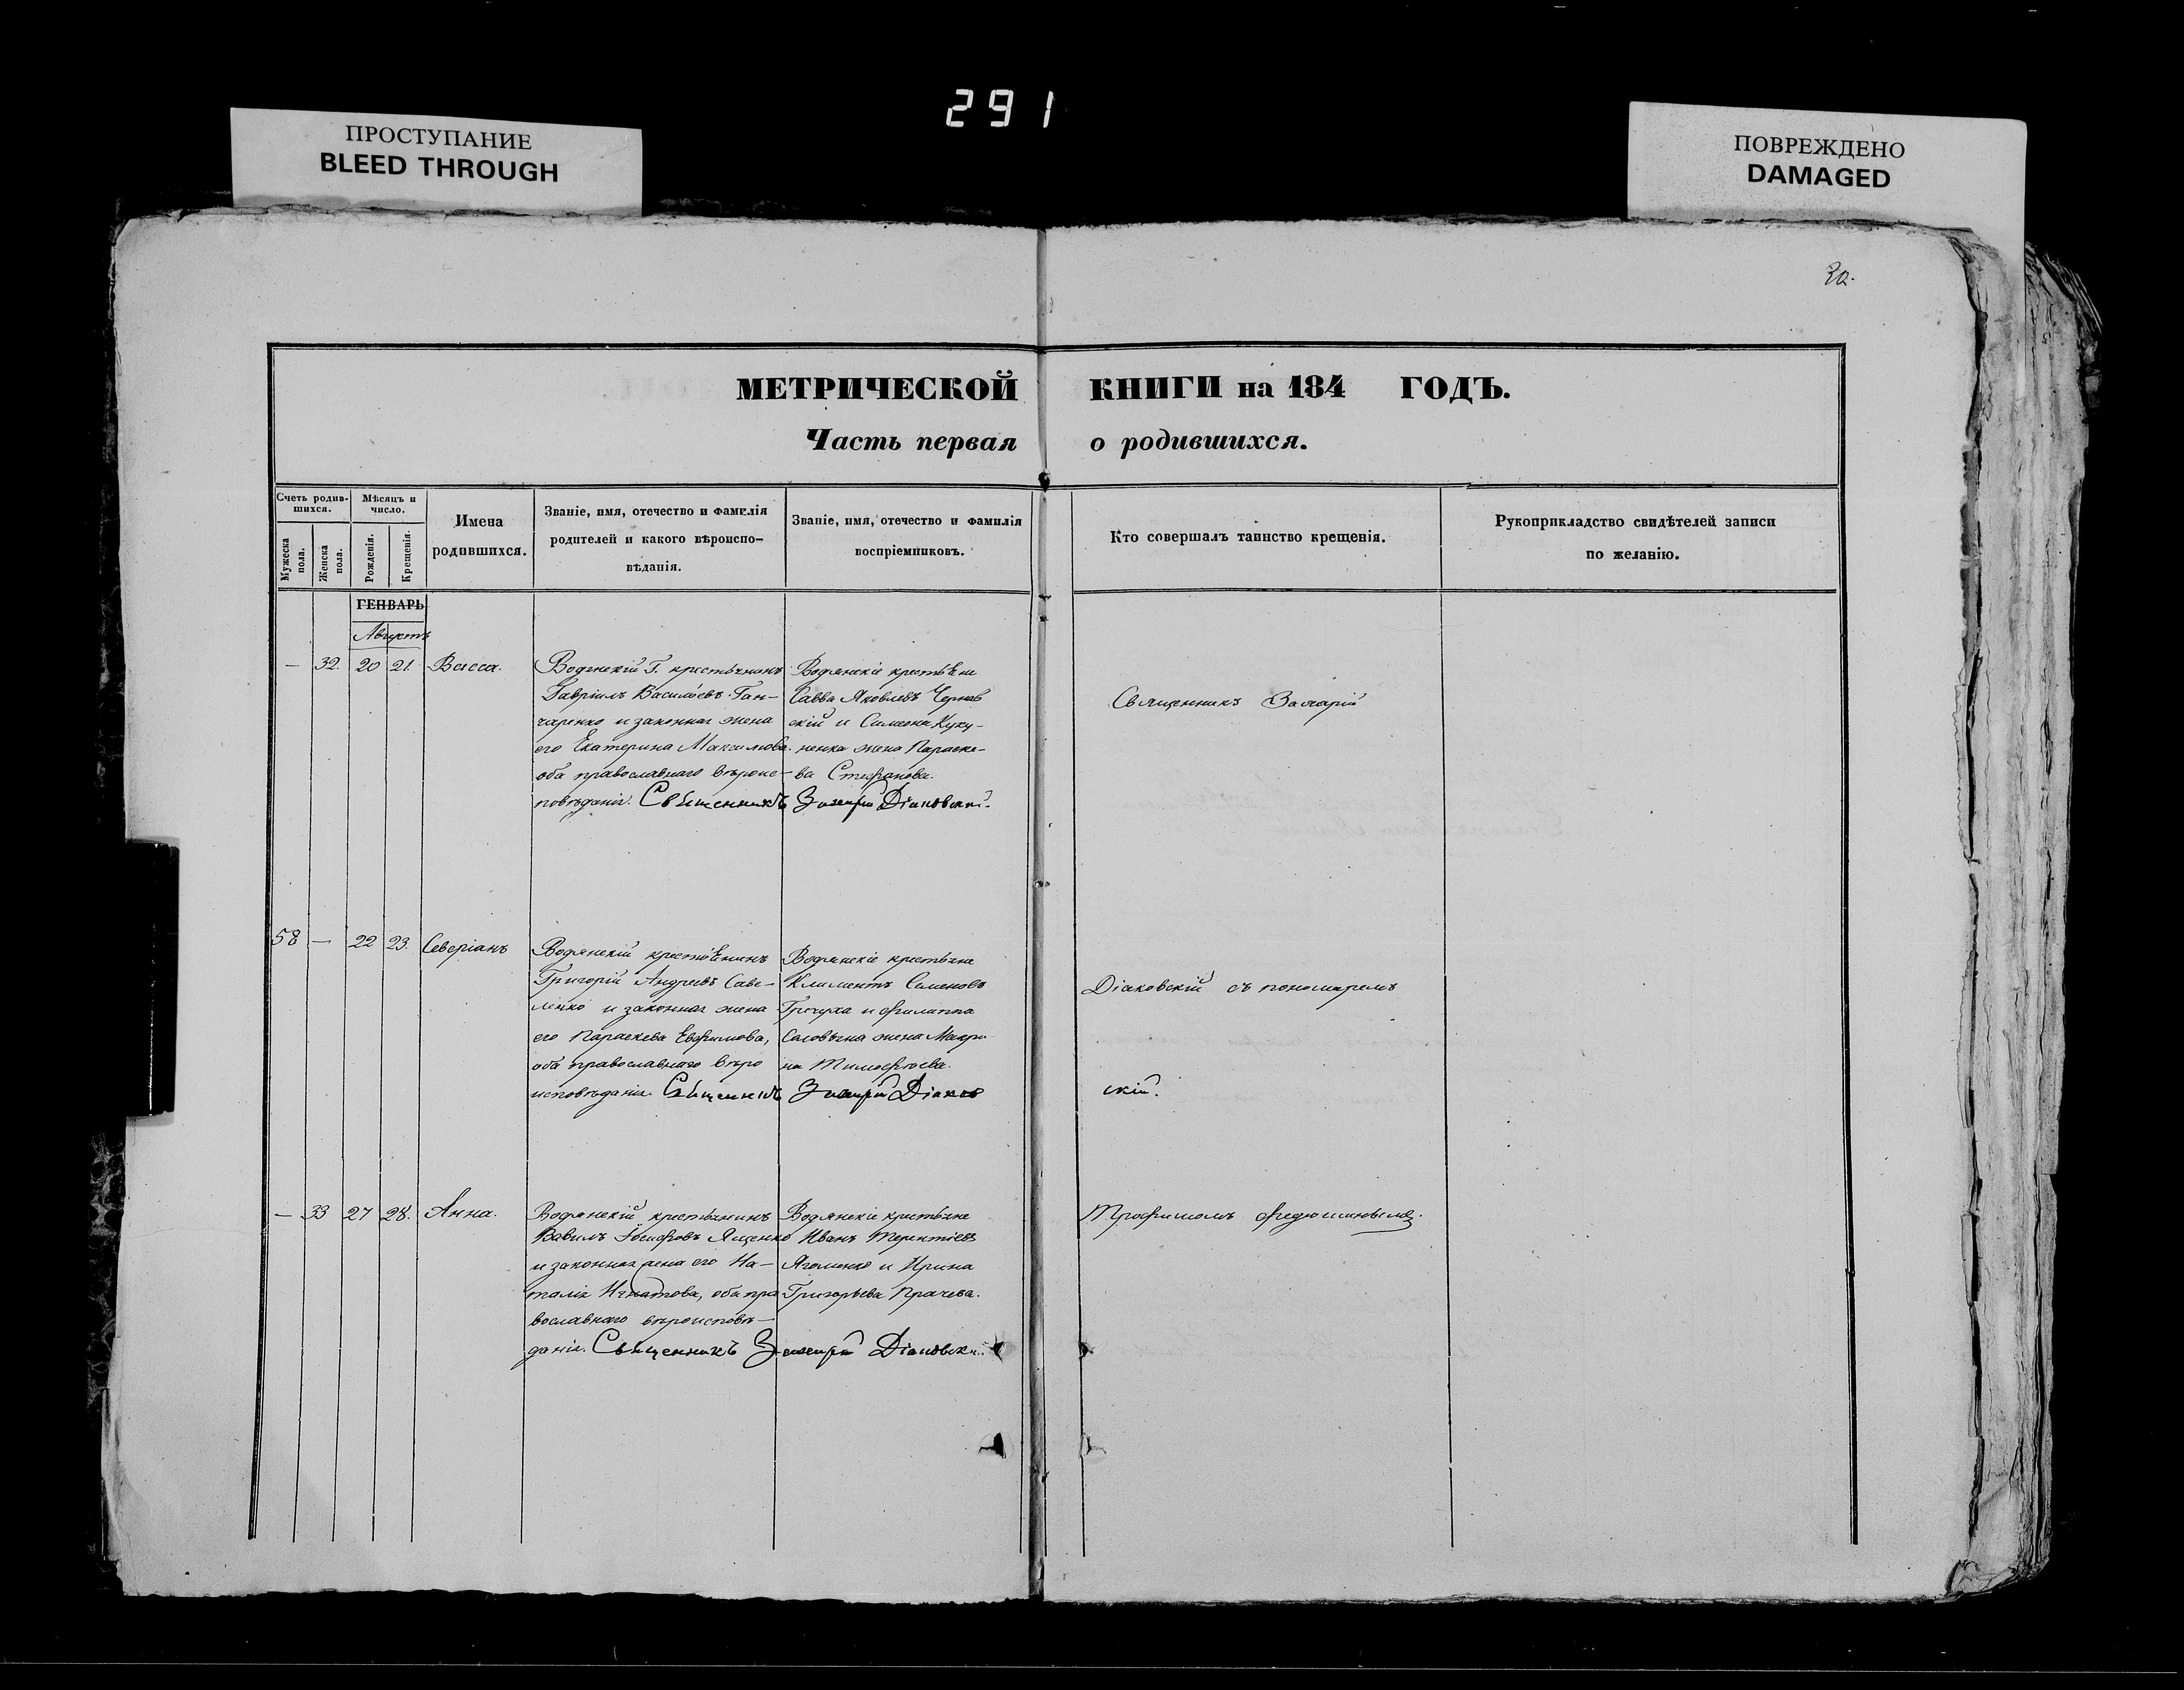 291
ПРОСТУПАНИЕ
BLEED THROUGH
ПОВРЕЖДЕНО
DAMAGED
30.
МЕТРИЧЕСКОЙ КНИГИ на 184 ГОДЪ.
Часть первая о родившихся.
Счетъ родив-
шихся.
Мѣсяцъ и
число.
Мужеска
пола.
Женска
пола.
Рожденія.
Крещенія.
Имена
родившихся.
Званіе, имя, отечество и фамилія
родителей и какого вѣроиспо-
вѣданія.
Званіе, имя, отечество и фамилія
воспріемниковъ.
Кто совершалъ таинство крещенія.
Рукоприкладство свидѣтелей записи
по желанію.
ГЕНВАРЬ
Августъ
— 32. 20 21. Васса.
Водянскій Г. крестьянинъ
Гавріилъ Васильевъ Ган-
чаренко и законная жена
его Екатерина Максимова.
оба православнаго вѣроис-
повѣданія. Священникъ Захарій Діаковскій.
Водянскіе крестьяне
Савва Яковлевъ Чернов
скій и Симеона Куку-
ненка жена Параске-
ва Стефанова.
Священникъ Захарій
58 — 22 23. Северіанъ
Водянскій крестьянинъ
Григорій Андреевъ Саве-
ленко и законная жена
его Параскева Ефимова,
оба православнаго вѣро
исповѣданія. Священникъ Захарій Діаков
Водянскіе крестьяне
Климентъ Семеновъ
Гречуха и Филиппа
жена Макри
на Тимофѣева.
Діаковскій съ пономаремъ
скій.
— 33 27 28. Анна.
Водянскій крестьянинъ
Вавилъ Іосифовъ Яценко
и законная жена его На-
талія Игнатова, оба пра
вославнаго вѣроисповѣ-
данія. Священникъ Захарій Діаковскій.
Водянскіе крестьяне
Иванъ Терентіевъ
и Ирина
Григорьева Прачева.
Трофимомъ Федюшинымъ.